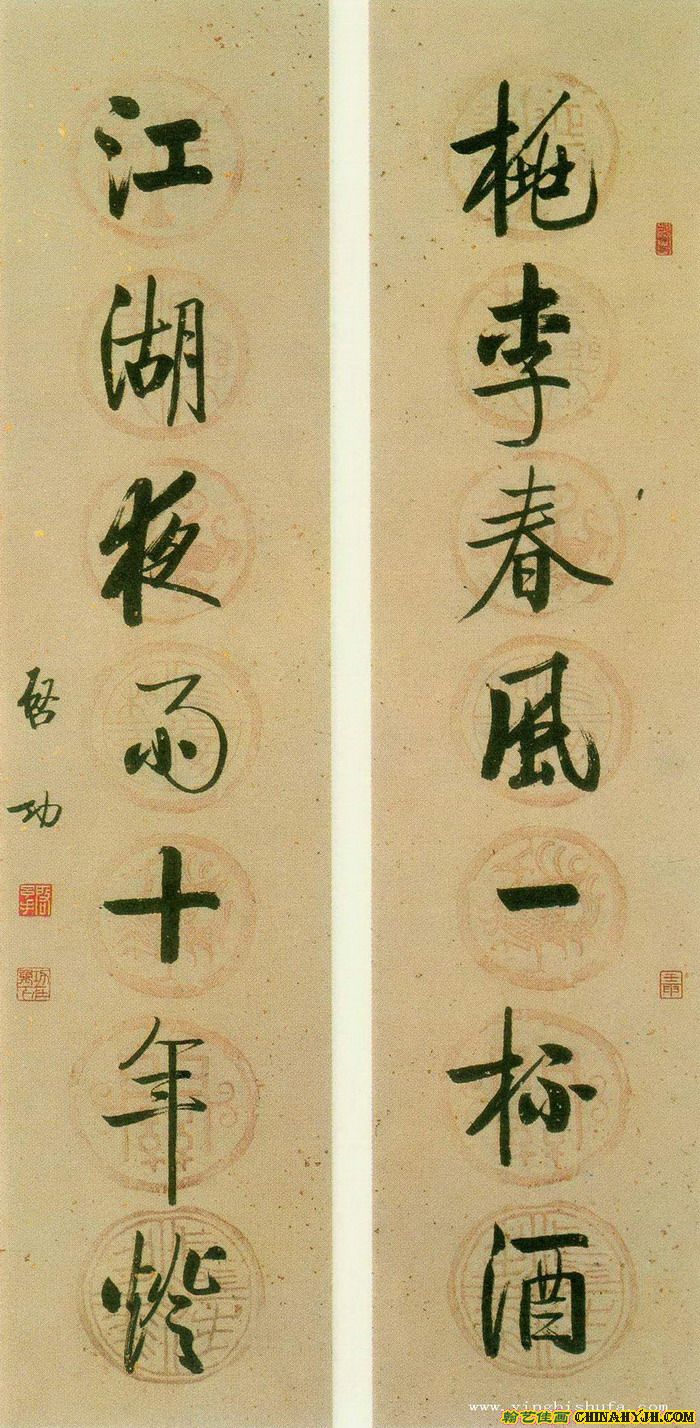 桃李春風一杯酒
江湖夜雨十年燈
啓功
www.yingbishufa.com
翰艺佳画 CHINAHYJH.COM